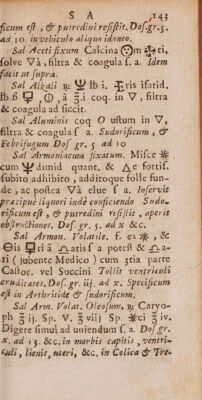 S A 143
ficum est, & putredini resistit. Dos. gr. 5.
ad 10 in vehiculo aliquo idoneo.
Sal Aceti fixum Calcina
solve ▽ à, filtra & coagula s. a. Idem
facit ut supra.
Sal Alkali ℞ lb i. ris isatid.
lb ß ā ℥.i. coq. in ▽, filtra
& coagula ad siccit.
Sal Aluminis coq O ustum in ▽,
filtra & coagula s a. Sudorificum, &
Febrifugum Dos gr. 5 ad 10
Sal Armoniacum fixatum. Misce ✱
cum dimid quant, & fortis.
subito adhibito, additoque solle fun-
de, ac postea ▽ à elue s a. Inservit
præcipue liquori indè conficiendo Sudo-
rificum est, & putredini resistit, aperit
obstructiones. Dos. gr. 5. ad x &c.
Sal Armon. Volatile. f. ex ✱, &
ā atis s a potest & a-
ri (jubente Medico) cum 3tia parte
Castor. vel Succini. Tollit ventriculi
cruditates. Dos. gr. iij. ad x. Specificum
est in Arthritide & sudorificum.
Sal Arm. Volat. Oleosum. ℞ Caryo-
ph ℥ ij. Sp. V. ℥ viij Sp. ✱ci ℥ iv.
Digere simul ad uniendum s. a. Dos. gr.
x. ad 15 &c. in morbis capitis, ventri-
culi, lienis, uteri, &c. in Colica & Tre-